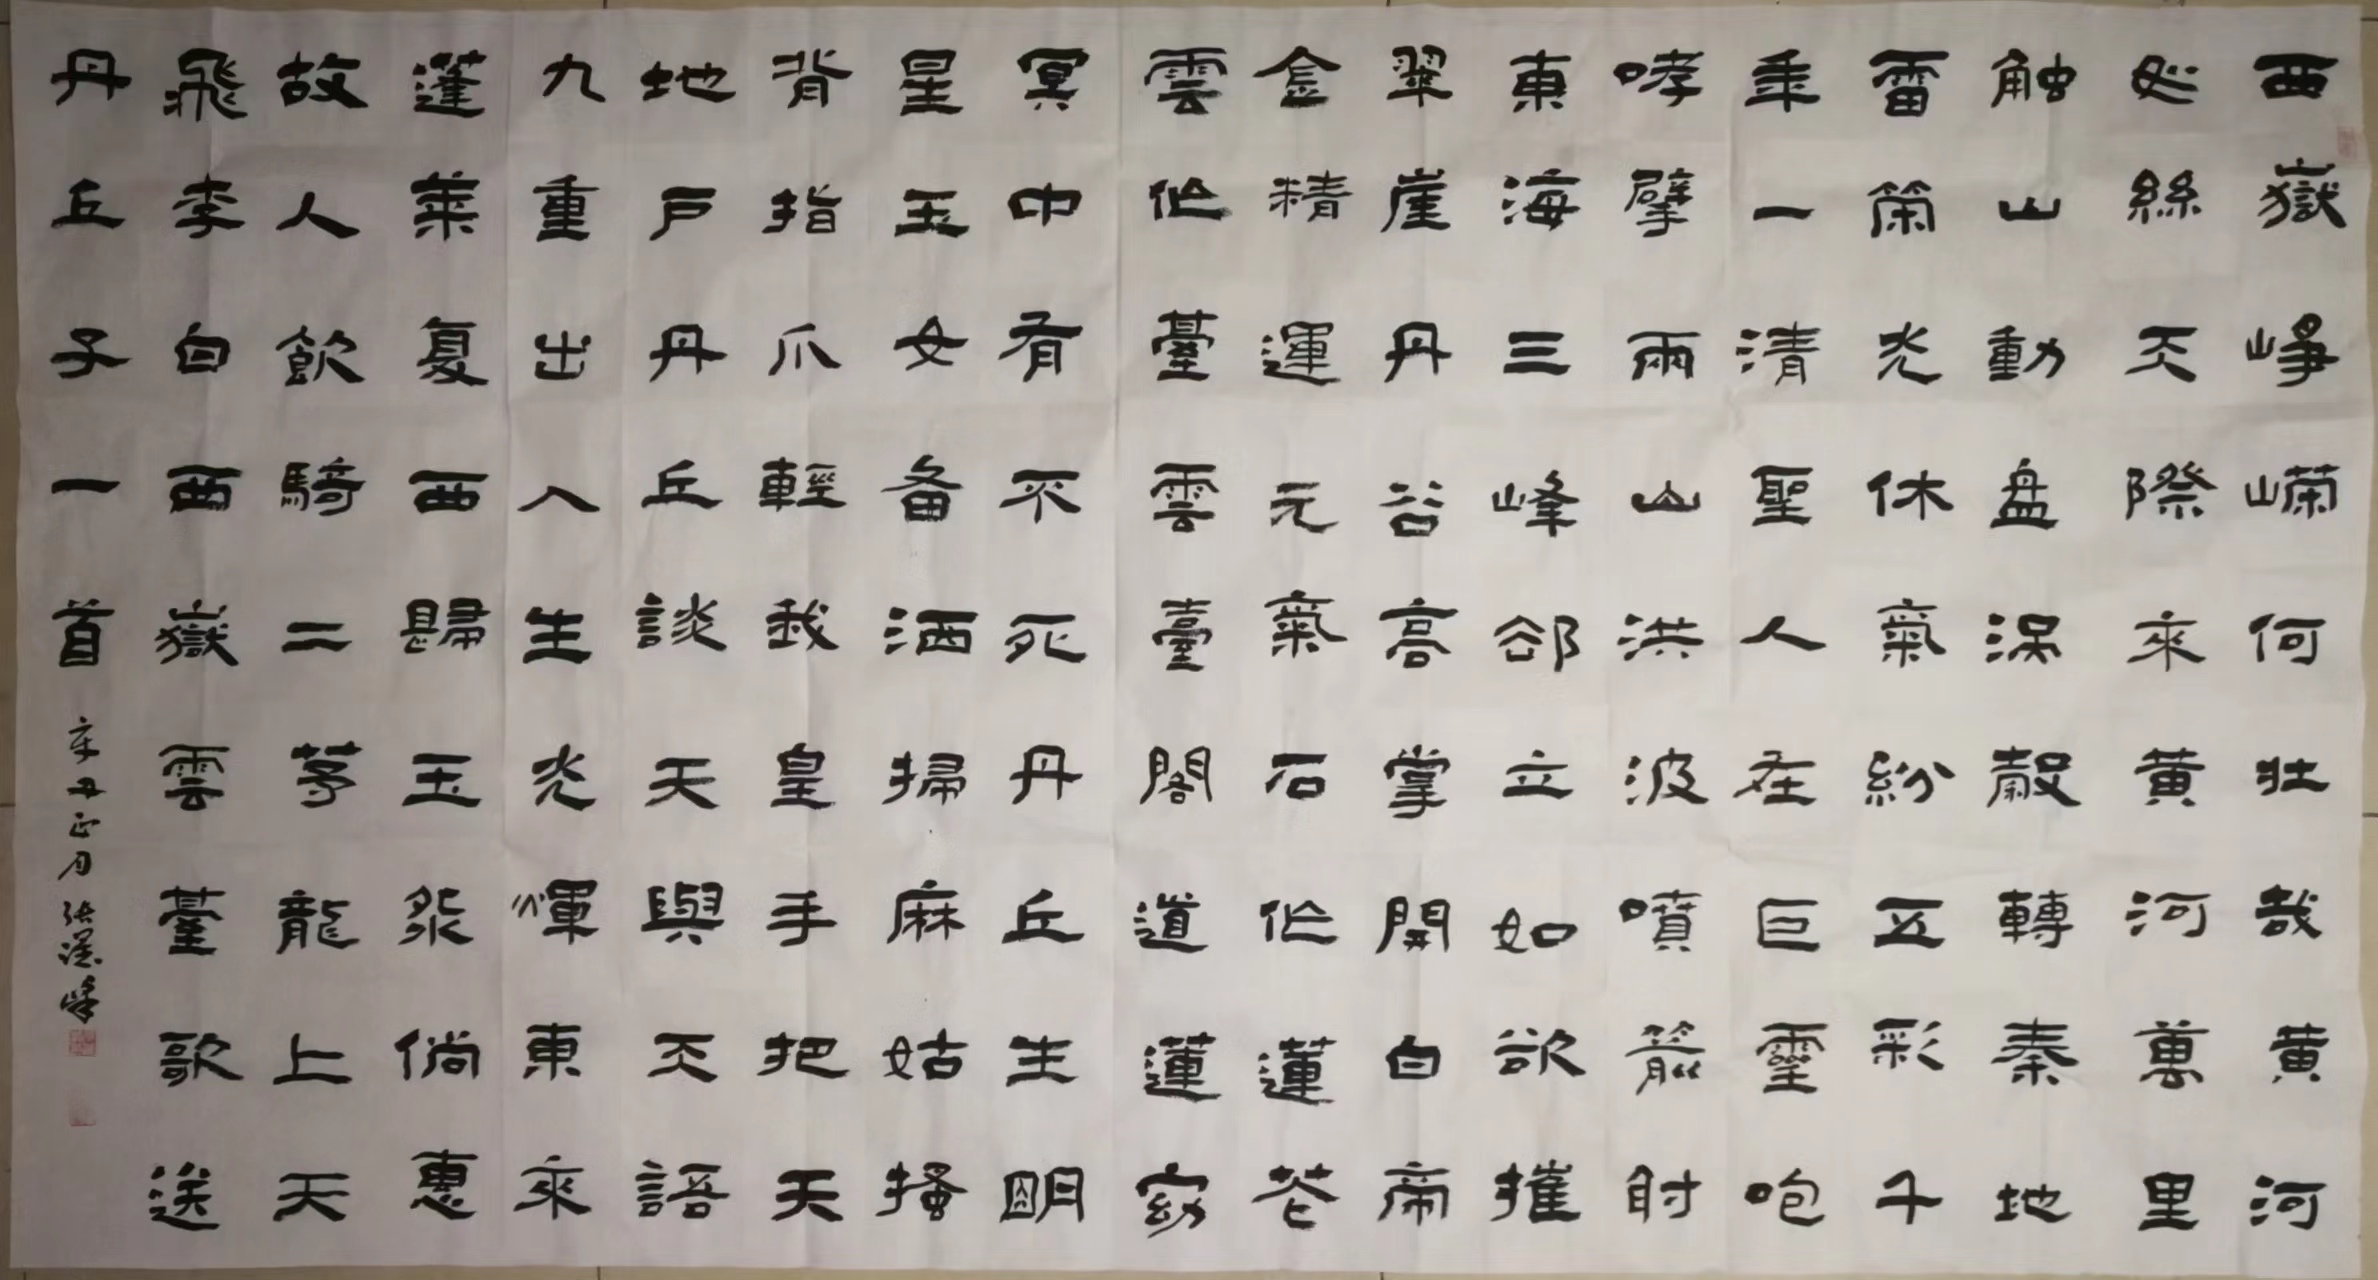 西嶽崢嶸何壯哉黄河
如絲天際來黄河萬里
触山動盘渦轂轉秦地
雷榮光休氣紛五彩千
年一清聖人在巨靈咆
哮擘兩山洪波噴箭射
東海三峰郤立如欲摧
翠崖丹谷高掌開白帝
金精運元氣石作蓮花
雲作臺雲臺閣道蓮窈
冥中有不死丹丘生明
星玉女备洒掃麻姑搔
背指爪輕我皇手把天
地户丹丘談天與天語
九重出入生光輝東來
蓬萊复西歸玉漿倘惠
故人飲騎二茅龍上天
飛李白西嶽雲臺歌送
丹丘子一首
辛丑正月张漢峰